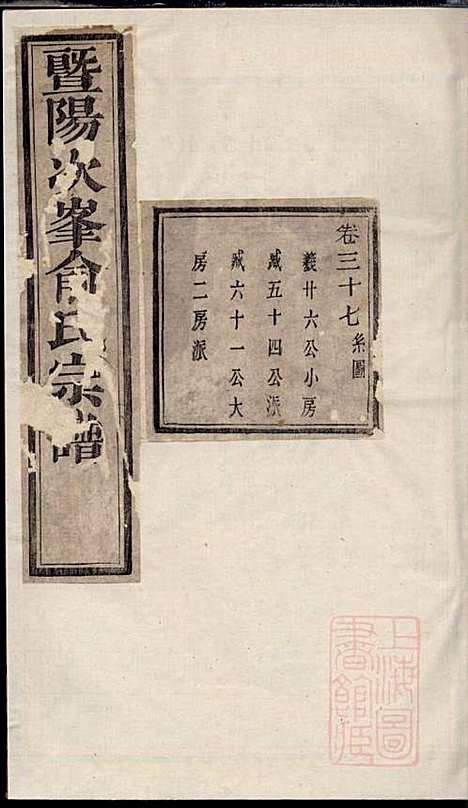 暨陽次峯俞氏宗譜
卷三十七系圖
義廿六公小房
咸五十四公派
咸六十一公大
房二房派
上海圖
書館藏